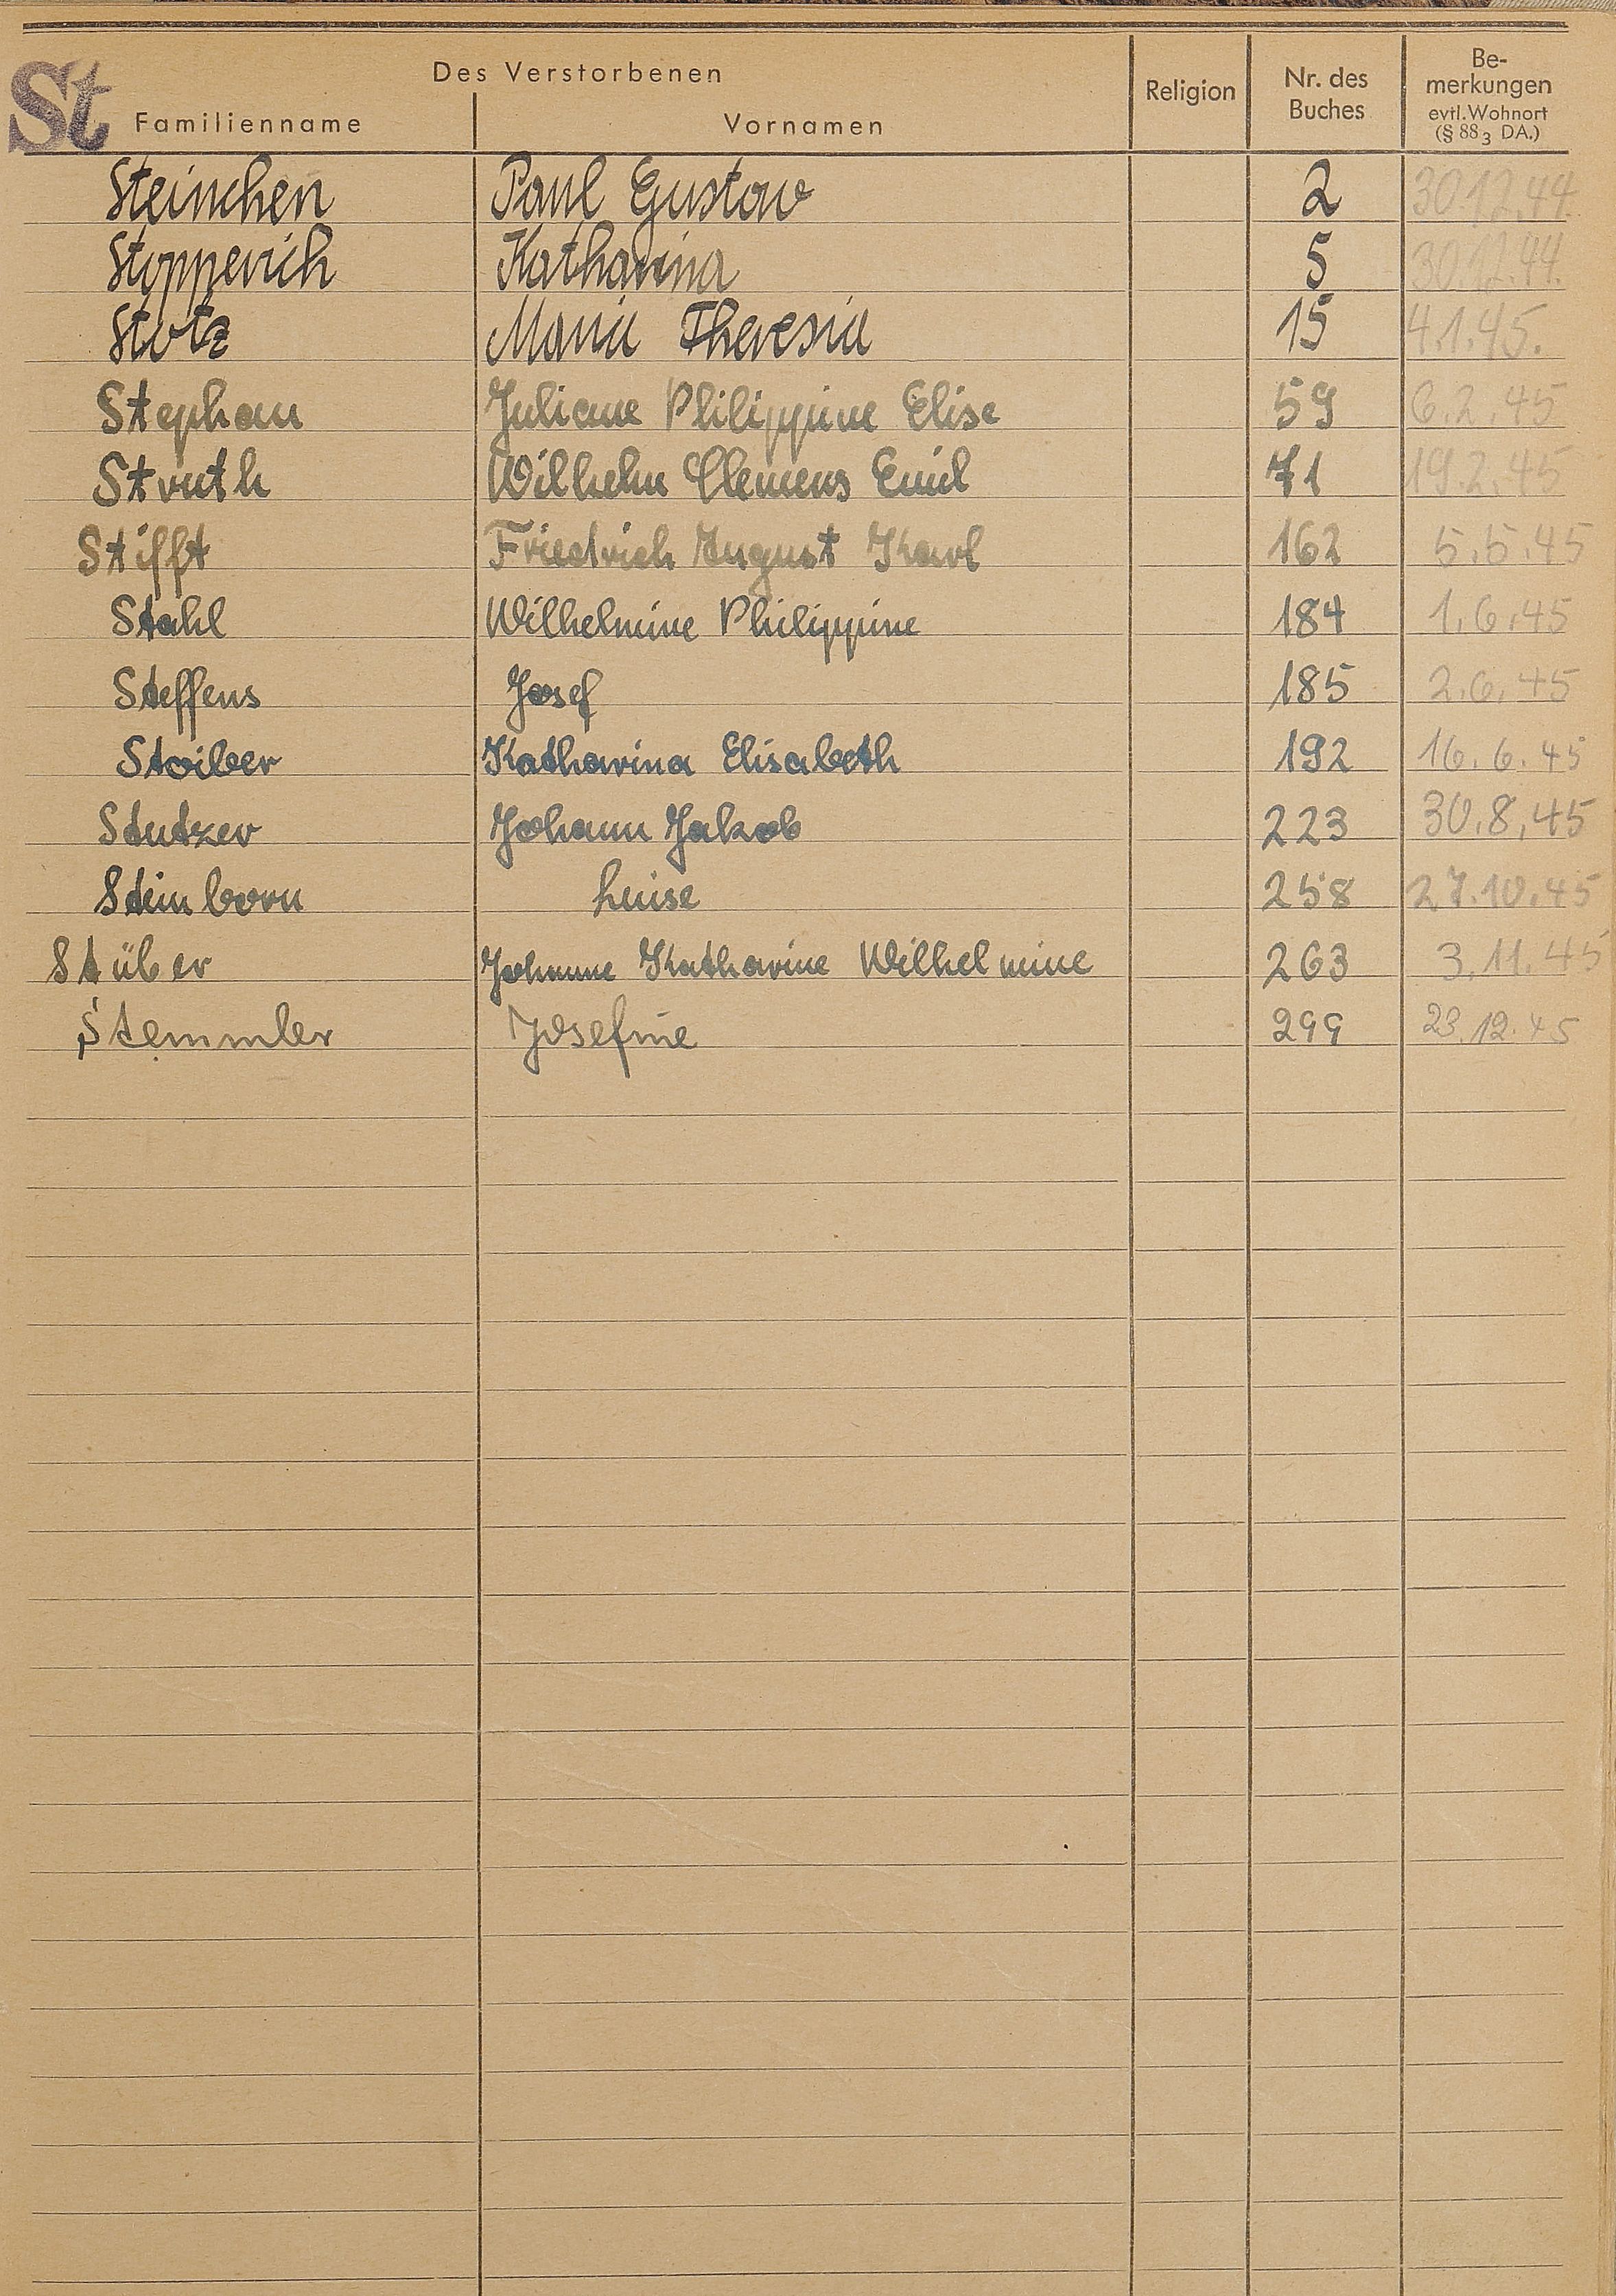 St
Des Verstorbenen
Familienname Vornamen Religion Nr. des Buches Be-merkungen evtl. Wohnort (§ 88 3 DA.)
Steinchen Paul Gustav 2 30.12.44.
Stopperich Katharina 5 30.12.44.
Stotz Maria Theresia 15 4.1.45.
Stephan Juliane Philippine Elise 59 6.2.45
Struth Wilhelm Clemens Emil 71 19.2.45
Stifft Friedrich August Karl 162 5.5.45
Stahl Wilhelmine Philippine 184 1.6.45
Steffens Josef 185 2.6.45
Stoiber Katharina Elisabeth 192 16.6.45
Stutzer Johann Jakob 223 30.8.45
Steinborn Luise 258 27.10.45
Stüber Johanne Katharine Wilhelmine 263 3.11.45
Stemmler Josefine 299 23.12.45